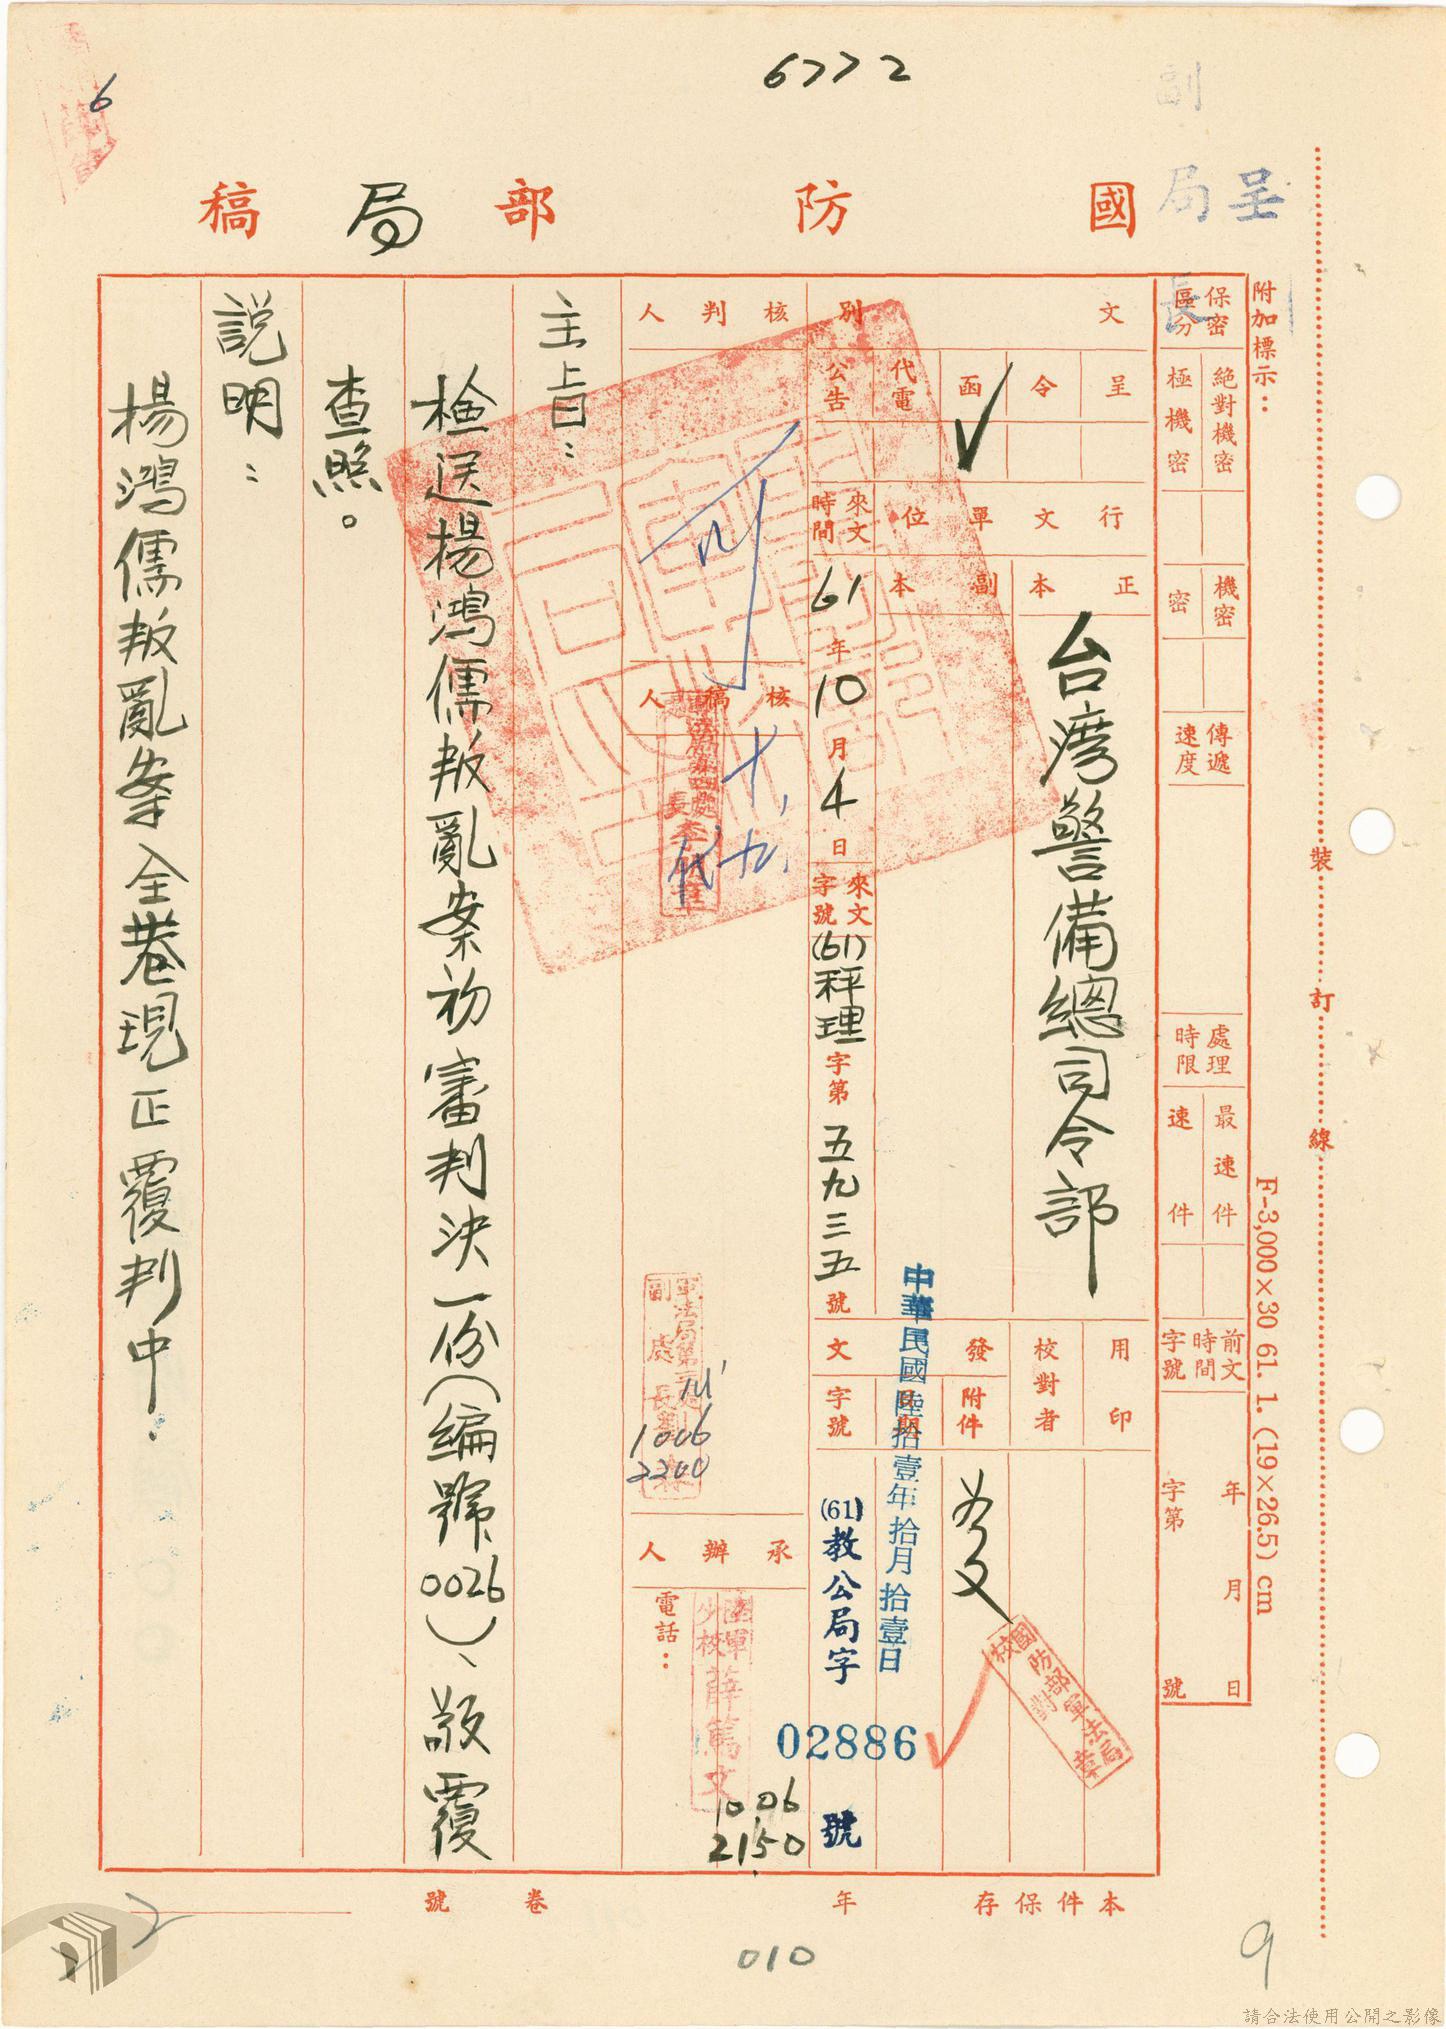 6772
國防部局稿
呈
副局長
附加標示：
保密區分
絕對機密
極機密
機密
密
傳遞速度
處理時限
最速件
速件
前文時間字號
年月日
字第號
F-3,000×30 61. 1. (19×26.5) cm
裝訂線
文別
呈
令
函
✓
代電
公告
行文單位
正本
台灣警備總司令部
副本
來文時間
61年10月4日
來文字號
(61)秤理字第五九三五號
用印
校對者
國防部軍法局校對章
發文
附件
日期
中華民國陸拾壹年拾月拾壹日
字號
(61)教公局字
02886號
核判人
核稿人
十、
十九、
代
軍法局第三處副處長劉
1006
2200
承辦人
電話：
陸軍少校薛篤文
1006
2150
主旨：
檢送楊鴻儒叛亂案初審判決一份（編號0026）、敬覆
查照。
說明：
楊鴻儒叛亂案全卷現正覆判中.
本件保存年
卷號
010
9
6
請合法使用公開之影像